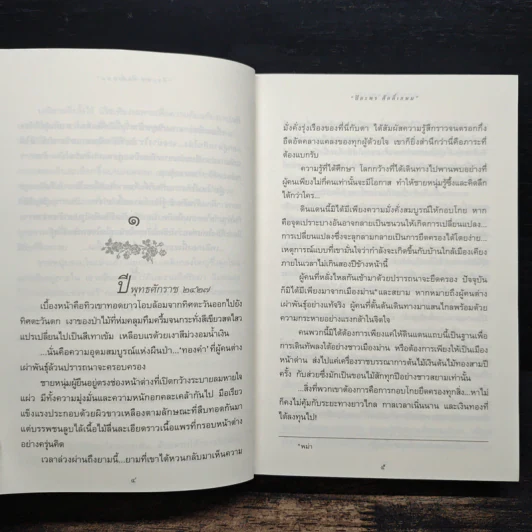 ๑
ปีพุทธศักราช ๒๔๒๗
เบื้องหน้าคือทิวเขาทอดยาวโอบล้อมจากทิศตะวันออกไปยัง
ทิศตะวันตก เงาของป่าไม้ที่ห่มคลุมทึมครึ้มจนกระทั่งสีเขียวสดใส
แปรเปลี่ยนไปเป็นสีเทาเข้ม เหลือบแรด้วยเงาสีม่วงอมน้ำเงิน
...นั่นคือความอุดมสมบูรณ์แห่งผืนป่า...'ทองคำ' ที่ผู้คนต่าง
เผ่าพันธุ์ล้วนปรารถนาจะครอบครอง
ชายหนุ่มผู้ยืนอยู่ตรงช่องหน้าต่างที่เปิดกว้างระบายลมหายใจ
แผ่ว มีทั้งความมุ่งมั่นและความหนักอกคละเคล้ากันไป มือเรียว
แข็งแรงประกอบด้วยผิวขาวเหลืองตามลักษณะที่สืบทอดกันมา
แต่บรรพชนลูบไล้เนื้อไม้ลื่นละเอียดราวเนื้อแพรที่กรอบหน้าต่าง
อย่างครุ่นคิด
เวลาล่วงผ่านถึงยามนี้...ยามที่เขาได้หวนกลับมาเห็นความ
๔
มั่งคั่งรุ่งเรืองของที่นี่กับตา ได้สัมผัสความรู้สึกราวจนตรอกกึ่ง
อึดอัดคลางแคลงของทุกผู้ด้วยใจ เขาก็ยิ่งสำนึกว่านี่คือภาระที่
ต้องแบกรับ
ความรู้ที่ได้ศึกษา โลกกว้างที่ได้เดินทางไปพานพบอย่างที่
ผู้คนเพียงไม่กี่คนเท่านั้นจะมีโอกาส ทำให้ชายหนุ่มรู้ซึ้งและคิดลึก
ไกกว่าใคร...
ดินแดนนี้มิได้มีเพียงความมั่งคั่งสมบูรณ์ให้กอบโกย หาก
คือจุดเปราะบางอันอาจกลายเป็นชนวนให้เกิดการเปลี่ยนแปลง...
การเปลี่ยนแปลงซึ่งจะลุกลามกลายเป็นการยึดครองได้โดยง่าย...
เหตุการณ์แบบที่เขามั่นใจว่ากำลังจะเกิดขึ้นกับบ้านใกล้เมืองเคียง
ภายในเวลาไม่เกินสองปีข้างหน้านี้
ผู้คนที่หลั่งไหลกันเข้ามาด้วยปรารถนาจะยึดครอง ปัจจุบัน
ก็มิได้มีเพียงชาวเมืองม่าน* และสยาม หากหมายถึงผู้คนต่าง
เผ่าพันธุ์อย่างแท้จริง ผู้คนที่ดั้นด้นเดินทางมาแสนไกลพร้อมด้วย
ความกระหายอย่างแรงกล้าในจิตใจ
คนพวกนี้มิได้ต้องการแค่ให้ดินแดนแถบนี้เป็นฐานเพื่อ
การเดินทัพลงใต้อย่างชาวเมืองม่าน หรือต้องการเพียงให้เป็นเมือง
หน้าด่าน ส่งไปแค่เครื่องราชบรรณาการต้นไม้เงินต้นไม้ทองสามปี
ครั้ง กับส่วยซึ่งมักเป็นขอนไม้สักทุกปีอย่างชาวสยามเท่านั้น
...สิ่งที่พวกเขาต้องการคือการกอบโกยยึดครองทุกสิ่ง...หาไม่
ก็คงไม่คุ้มกับระยะทางยาวไกล กาลเวลาเนิ่นนาน และเงินทองที่
ได้ลงทุนไป!
*พม่า
๕